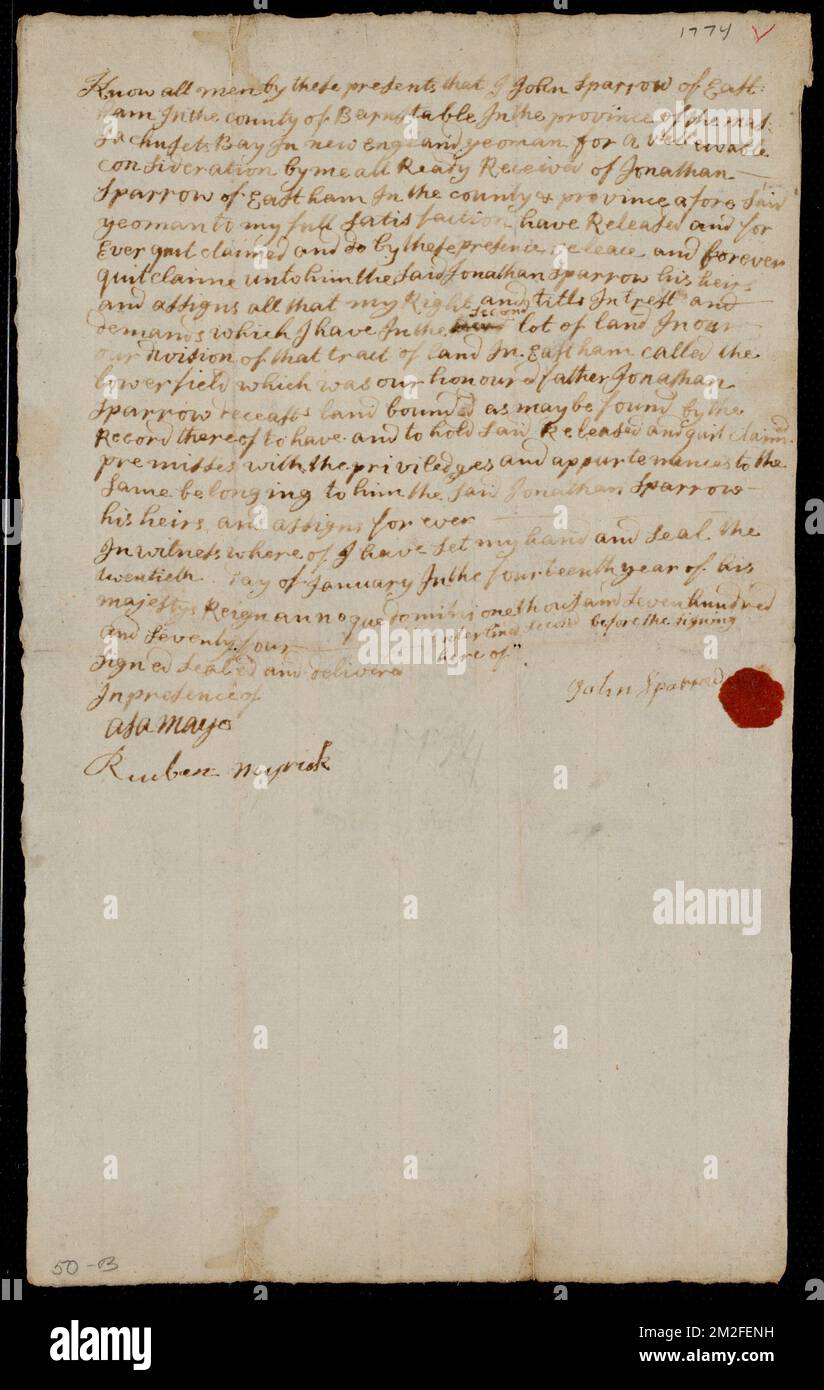 1774 V
Know all men by these presents that I John Sparrow of East:
ham In the county of Barnstable In the province of the mas:
sachusets Bay In new england yeoman for a valewable
consideration by me all Ready Received of Jonathan
Sparrow of Eastham In the county & province afore said
yeoman to my full satisfaction have Released and for
Ever quit claimed and do by these presence releace and forever
quitclaime unto him the said Jonathan Sparrow his heirs
and assigns all that my Right and title Intrest and
second
demands which I have In the lot of land In our
our division of that tract of land In Eastham called the
lower field which was our honoured father Jonathan
Sparrow receasts land bounded as may be found by the
Record thereof to have and to hold said Released and quit claimed
premisses with the priviledges and appurtenances to the
same belonging to him the said Jonathan Sparrow
his heirs and assigns for ever
In witness where of I have set my hand and seal the
twentieth Day of January In the fourteenth year of his
majestys Reign annoque domini one thousand seven hundred
and seventy four interlined second before the signing
here of"
signed sealed and delivered
In presence of
John Sparrow
asa mayo
Reuben Myrick
1774
50-B
alamy
alamy
Image ID: 2M2FENH
www.alamy.com